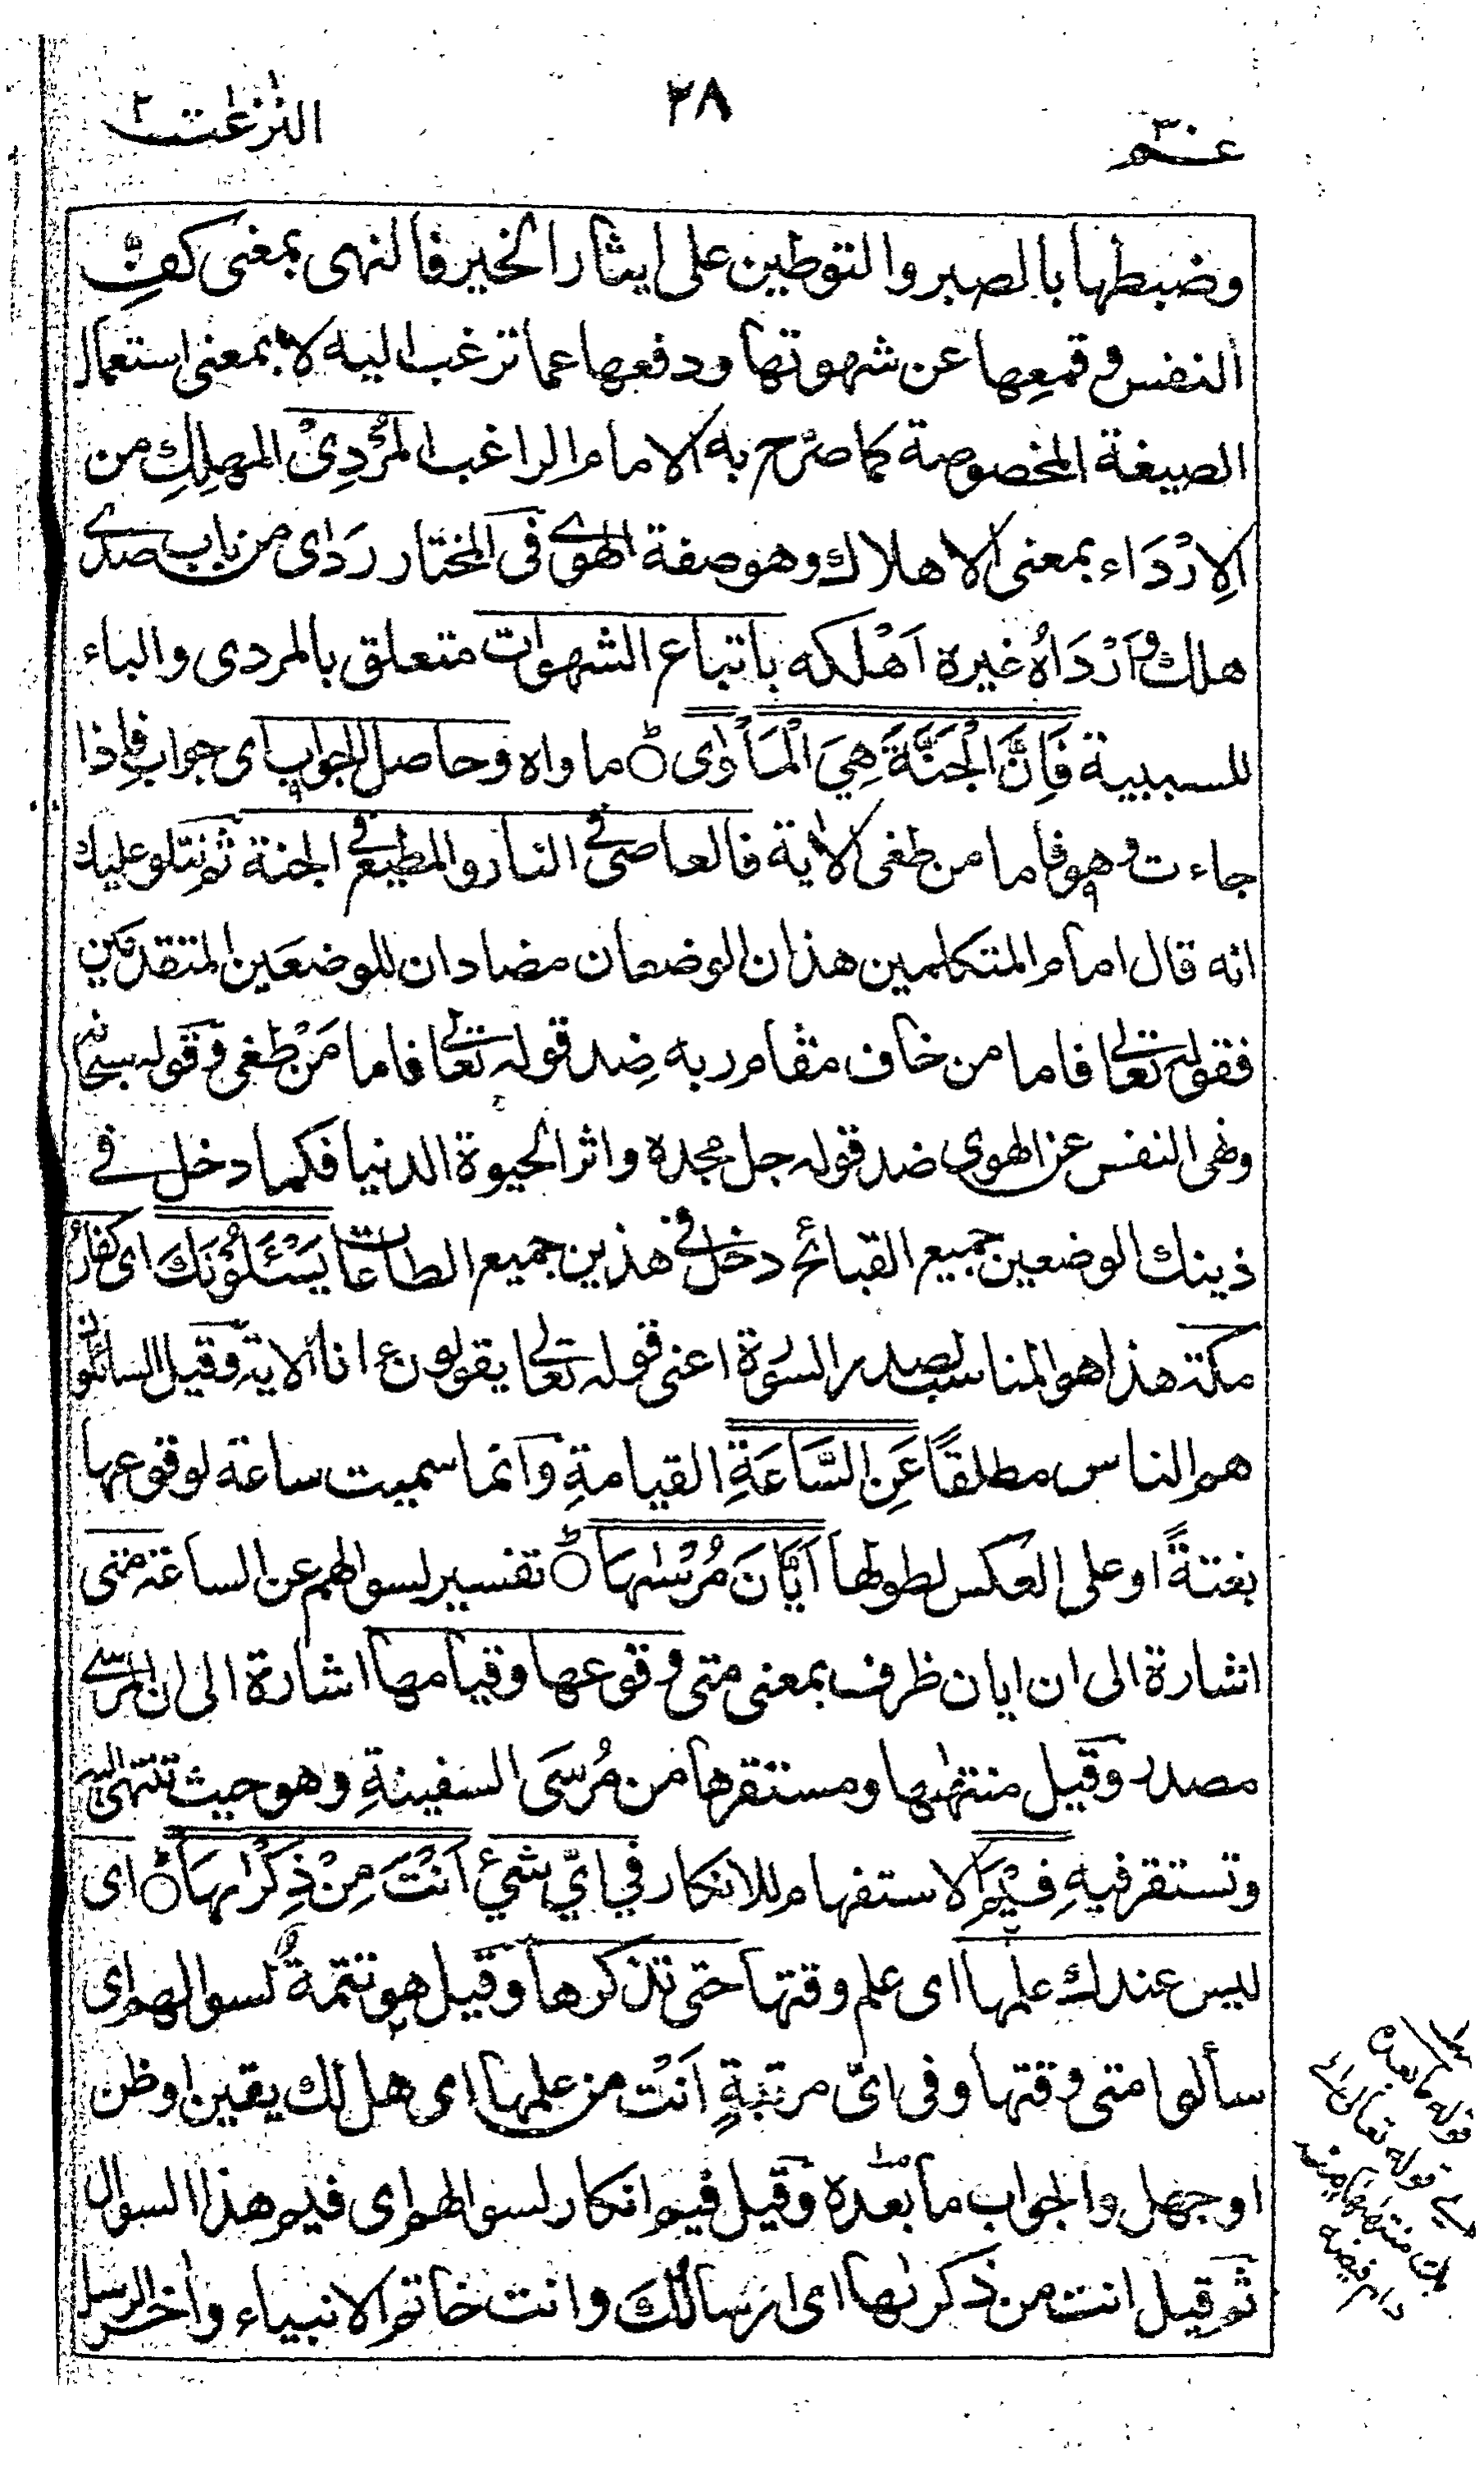 عم ٣٠
٢٨
النزعت ٢
وضبطها بالصبر والتوطين على ايثار الخير فالنهى بمعنى كفِّ
النفس وقمعِها عن شهوتها ودفعها عما ترغب اليه لا بمعنى استعمال
الصيغة المخصوصة كما صرّح به الامام الراغب المُرْدِىْ المهلِكِ من
الاِرْدَاء بمعنى الاهلاك وهو صفة الهوى فى المختار رَدَاى من باب صدى
هلك وَاَرْدَاهُ غيره اَهْلكه باتباع الشهوات متعلق بالمردى والباء
للسببية فَاِنَّ الْجَنَّةَ هِيَ الْمَاْوٰى ؕ ماواه وحاصل الجواب اى جواب فاِذا
جاءت وهو فاما من طغى الاية فالعاصى فى النار والمطيع فى الجنة ثم نتلو عليك
انه قال امام المتكلمين هذان الوضعان مضادان للوضعَين المتقدمَين
فقوله تعالى فاما من خاف مقام ربه ضِد قوله تعالى فاما مَنْ طغى وقوله سبحانه
ونهى النفس عن الهوى ضد قوله جل مجده واثر الحيوة الدنيا فكما دخل فى
ذينك الوضعين جميع القبائح دخل فى هذين جميع الطاعات يَسْئَلُوْنَكَ اى كفارُ
مكة هذا هو المناسب لصدر السورة اعنى قوله تعالى يقولون ءانا الاية وقيل السائلون
هم الناس مطلقًا عَنِ السَّاعَةِ القيامةِ وانما سميت ساعة لوقوعها
بغتةً او على العكس لطولها اَيَّانَ مُرْسٰىهَا ؕ تفسير لسوالهم عن الساعة متى
اشارة الى ان ايان ظرف بمعنى متى وقوعها وقيامها اشارة الى ان المرسى
مصدر وقيل منتهٰىها ومستقرها من مُرسَى السفينةِ وهو حيث تنتهى اليه
وتستقر فيهِ فِيْمَ الاستفهام للانكار في ايّ شئٍ اَنْتَ مِنْ ذِكْرٰىهَا ؕ اى
ليس عندك علمها اى علم وقتها حتى تذكرها وقيل هو تتمة لسوالهم اى
سألوا متى وقتها وفى اىّ مرتبةٍ اَنْتَ من علمها اى هل لك يقين او ظن
او جهل والجواب ما بعده وقيل فيم انكار لسوالهم اى فيم هذا السوال
ثم قيل انت من ذكرٰىها اى ارسالك وانت خاتم الانبياء واٰخر الرسل
قوله ما بعده
قوله تعالى الى
ربك منتهٰها